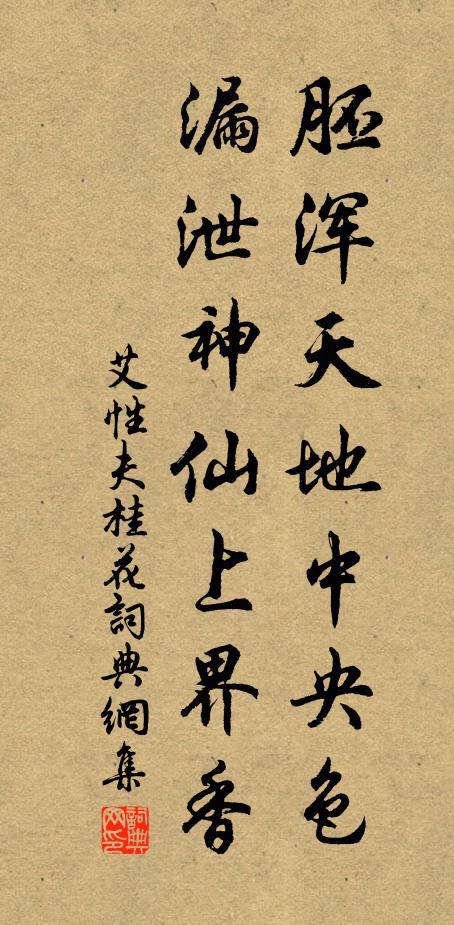 胚浑天地中央色
漏泄神仙上界香
艾性夫桂花詞典網集
詞典网印